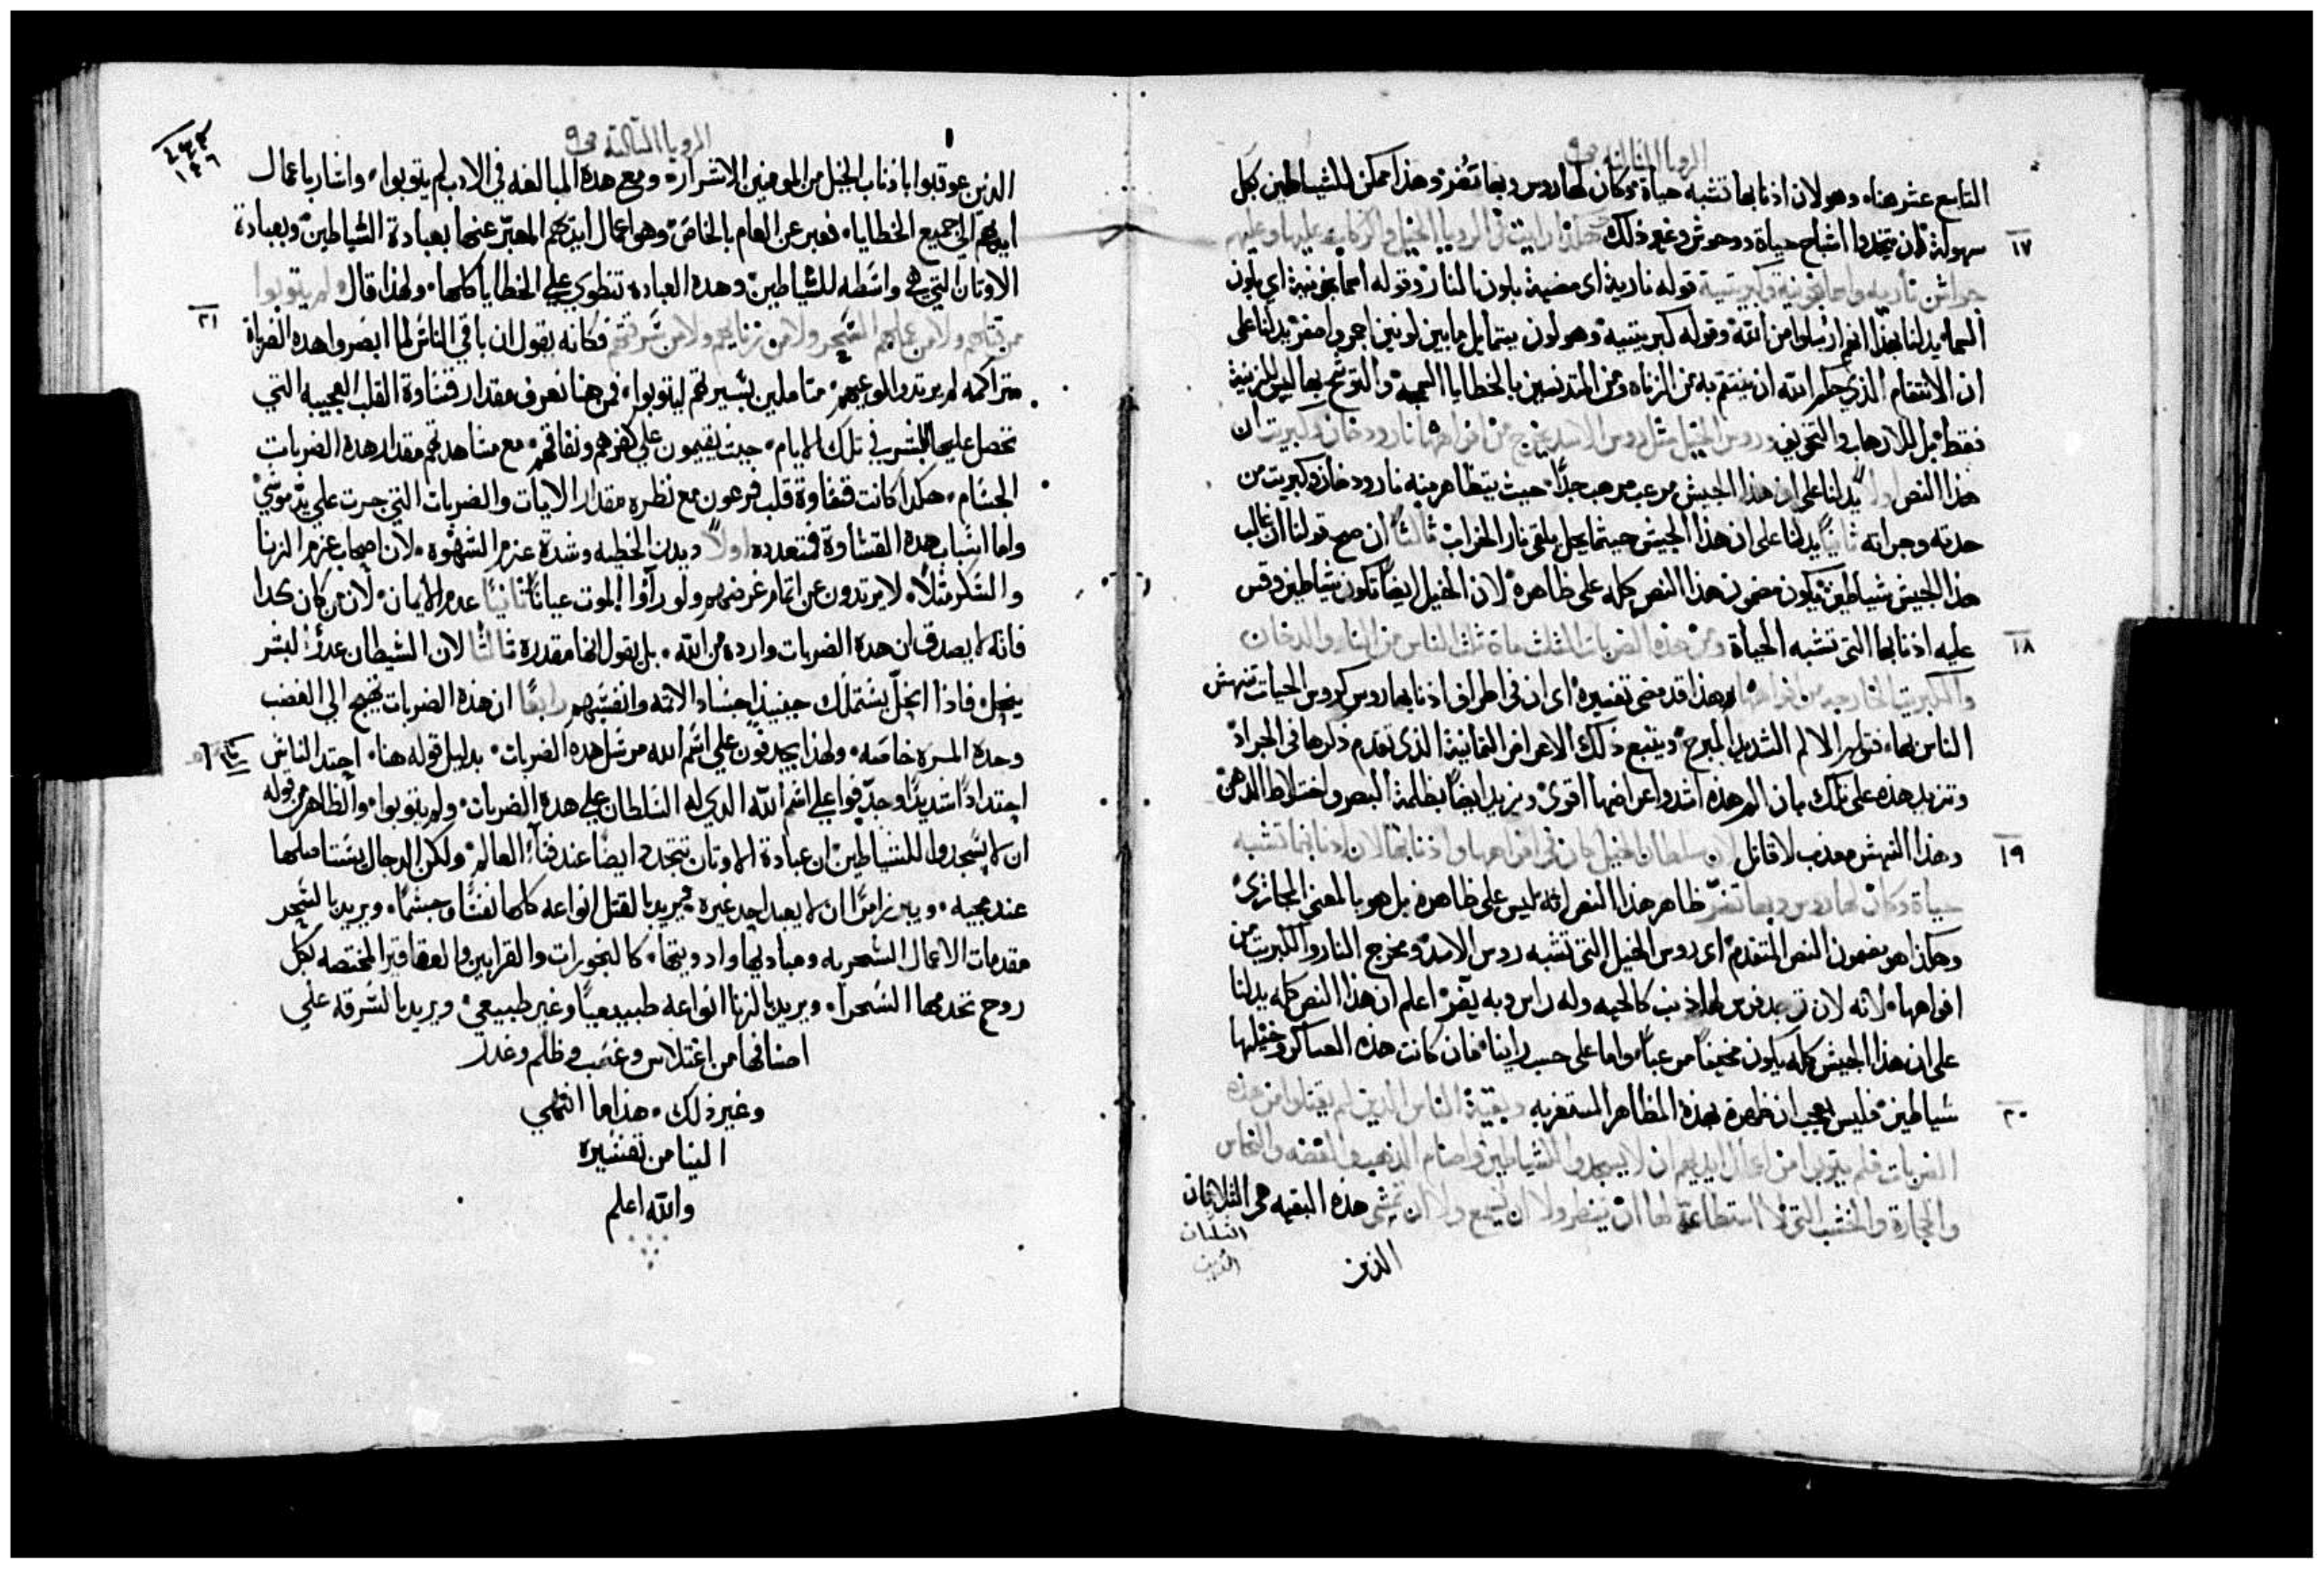 الرويا الثالثة ص٩
التاسع عشر هنا، وهو لان اذنابها تشبه حياة وكان لها روس وبها تضر وهذا ممكن للشياطين بكل
١٧
سهولة ان يتخذوا اشباح حياة ووحوش وغير ذلك هكذا رايت في الرويا الخيل والركاب عليها وعليهم
جواشن نارية واسمانجونية وكبريتية قوله نارية اى مضيية بلون النار وقوله اسمانجونية اى بلون
السما يدلنا بهذا انهم ارسلوا من الله وقوله كبريتية وهو لون يتمايل ما بين لونين احمر واصفر يدلنا على
ان الانتقام الذي حكم الله ان ينتقم به من الزناه ومن المتدنسين بالخطايا السمجة والتوشح بها ليس للزينة
فقط بل للارهاب والتخويف وروس الخيل مثل روس الاسد يخرج من افواهها نار ودخان وكبريت ان
هذا النص اولاً يدلنا على ان هذا الجيش مرعب مرهب جدًا حيث يتظاهر منه نار ودخان وكبريت من
حدته وجراته ثانيًا يدلنا على ان هذا الجيش حيثما يحل يلقى نار الخراب ثالثًا ان صح قولنا ان غالب
هذا الجيش شياطين يكون مضمون هذا النص كله على ظاهره لان الخيل ايضًا تكون شياطين وقس
١٨
عليه اذنابها التى تشبه الحياة ومن هذه الضربات الثلث مات ثلث الناس من النار والدخان
والكبريت الخارجه من افواهها وهذا قد مضى تفسيره اى ان في اطراف اذنابها روس كروس الحيات تنهش
الناس بها فتولهم الالم الشديد المبرح ويتبع ذلك الاعراض الثمانية الذى تقدم ذكرها في الجراد
وتزيد هذه على تلك بان الم هذه اشد واعراضها اقوى ويزيد ايضًا بظلمة البصر واختلاط الذهن
١٩
وهذا النهش معذب لا قاتل لان سلطان الخيل كان في افواهها واذنابها لان اذنابها تشبه
حياة وكان لها روس وبها تضر ظاهر هذا النص انه ليس على ظاهره بل هو بالمعنى المجازى
وهكذا هو مضمون النص المتقدم اى روس الخيل التى تشبه روس الاسد ومخرج النار والكبريت من
افواهها لانه لان ترعد فرس لها ذنب كالحيه وله راس وبه يضر اعلم ان هذا النص كله يدلنا
على ان هذا الجيش كله يكون مخيفًا مرعبًا واما على حسب راينا فان كانت هذه العساكر وخيلها
٢٠
شياطين فليس بعجب ان ظهرة بهذه المظاهر المستغربه وبقية الناس الذين لم يقتلوا من هذه
الضربات فلم يتوبوا من اعمال ايديهم ان لا يسجدوا للشياطين واصنام الذهب والفضه والنحاس
والحجارة والخشب التى لا استطاعة لها ان تنظر ولا ان تسمع ولا ان تمشى هذه البقيه هى الثلاثيان
الثلثان
الذين
الرويا الثالثة ص٩
الذين عوقبوا باذناب الخيل من المومنين الاشرار، ومع هذه المبالغه في الادب لم يتوبوا، واشار باعمال
ايديهم الى جميع الخطايا، فعبر عن العام بالخاص، وهو اعمال ايديهم المعبر عنها بعبادة الشياطين، وبعبادة
الاوتان التي هي واسطه للشياطين، وهده العباده تنطوي علي الخطايا كلها، ولهذا قال لم يتوبوا
٢١
من قتلهم ولا من عملهم السحر ولا من زنايهم ولا من سرقتهم فكانه يقول ان باقي الناس لما ابصروا هده الضرباة
متراكمه لم يرتدوا لوعيهم، متاملين بسيرتهم ليتوبوا، فمن هنا نعرف مقدار قساوة القلب العجيبه التي
تحصل عليها البشر في تلك الايام، حيث يقيمون علي كفرهم ونفاقهم، مع مشاهدتهم مقدار هده الضربات
الجسام، هكدا كانت قساوة قلب فرعون مع نظره مقدار الايات والضربات التي جرت علي يد موسي
واما اسباب هده القساوة فمتعدده اولًا ديدن الخطيه وشدة عزم الشهوه، لان اصحاب عزم الزنا
والسكر مثلًا، لا يرتدون عن اتمام غرضهم ولو راوا الموت عيانًا ثانيًا عدم الايمان، لان من كان كدا
فانه لا يصدق ان هده الضربات وارده من الله، بل يقول انها مقدره ثالثًا لان الشيطان عدو البشر
ينحل، فاذا انحل يستملك حينيذ اجساد الائمه وانفسهم رابعًا ان هذه الضربات تهيج الى الغضب
وحدة المره خاصه، ولهذا يجدفون علي اسم الله من مثل هده الضربات، بدليل قوله هنا، احتد الناس
احتدادًا شديدًا وجدفوا علي اسم الله الدي له السلطان علي هده الضربات، ولم يتوبوا، والظاهر من قوله
ان لا يسجدوا للشياطين، ان عبادة الاوتان تتجدد ايضًا عند فنآ العالم، ولكن الدجال يستاصلها
عند مجيه، ويبرز امرًا ان لا يعبد احد غيره، يريد بالقتل انواعه كلها نفسًا وجسمًا، ويريد بالسحر
مقدمات الاعمال السحريه ومباديها وادويتها، كالبخورات والقرابين والعقاقير المختصه بكل
روح تخدمها السحرا، ويريد بالزنا انواعه طبيعيًا وغير طبيعي، ويريد بالسرقه علي
اصنافها من اختلاس وغصب وظلم وغدر
وغير ذلك، هذا ما انتهي
الينا من تفسيره
والله اعلم